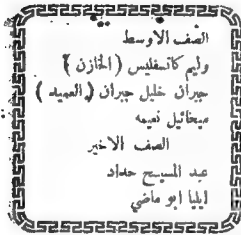 الصف الاوسط
وليم كاتسفليس (الخازن)
جبران خليل جبران (العميد)
ميخائيل نعيمه
الصف الاخير
عبد المسيح حداد
ايليا ابو ماضي